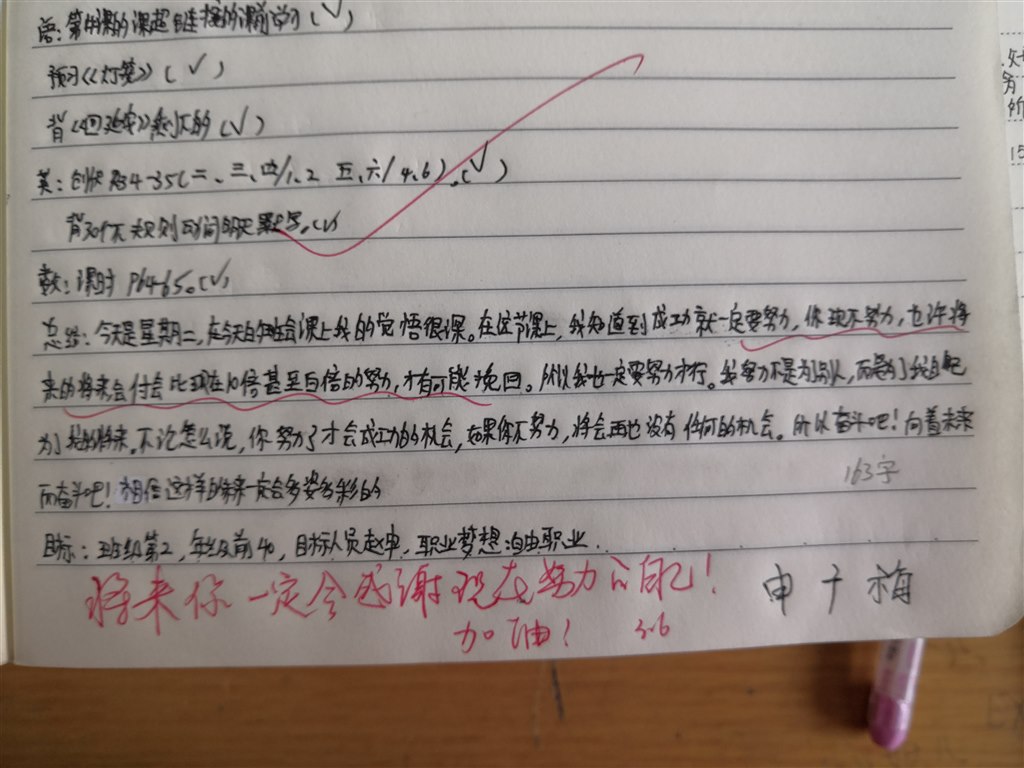 语：第4课的课超链接的课前学习（✓）
预习《灯笼》（✓）
背《回延安》（✓）
英：P34-35（二、三、四/1、2 五、六/4、6）。（✓）
背30个不规则动词的默写。（✓）
数：课时P64-65。（✓）
总结：今天是星期二，在今天的班会课上我的觉悟很深。在这节课上，我知道到成功就一定要努力，你现不努力，也许将
来的将来会付会比现在10倍甚至百倍的努力，才有可能挽回。所以我也一定要努力才行。我努力不是为别人，而是为了我自己
为了我的将来。不论怎么说，你努力了才会成功的机会，如果你不努力，将会再也没有任何的机会。所以奋斗吧！向着未来
而奋斗吧！相信这样的将来一定会多姿多彩的
163字
目标：班级第2，年级前40，目标人员赵申，职业梦想：自由职业
将来你一定会感谢现在努力的自己！
申于梅
加油！ 3.6
15